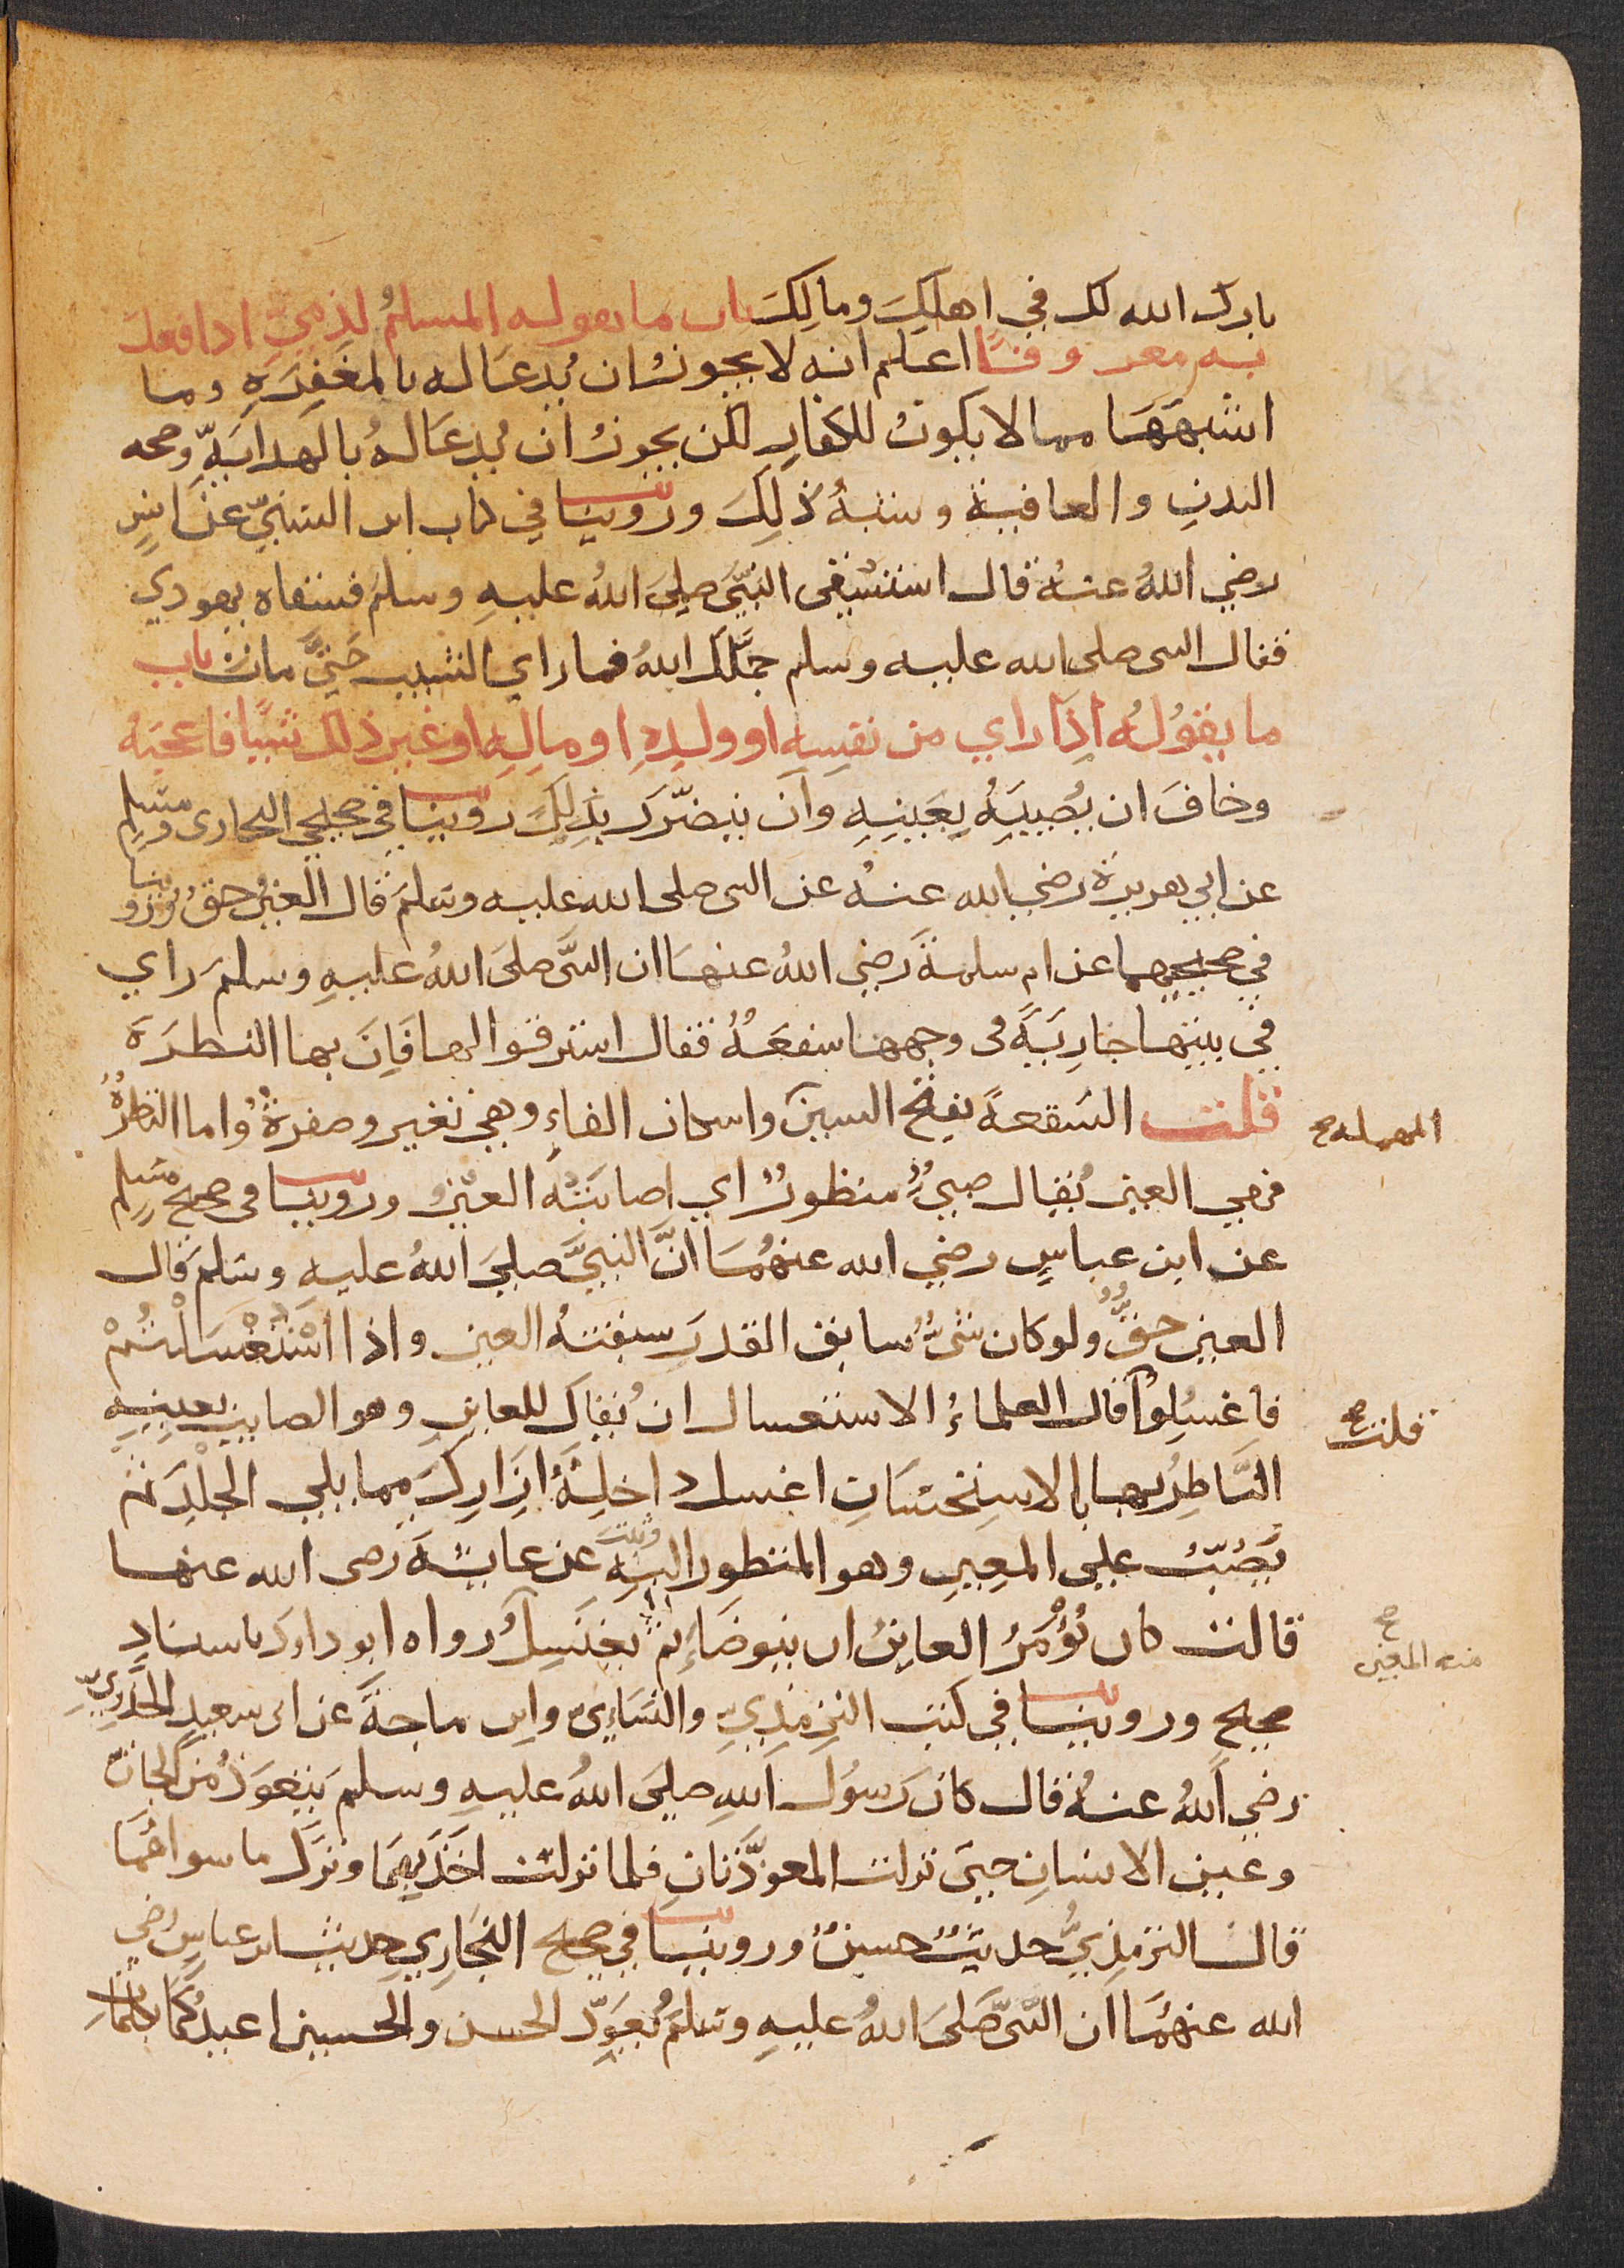 بارك الله لك في اهلك ومالك باب ما يقوله المسلم لذمي اذا فعل
به معروفا اعلم انه لا يجوز ان يدعا له بالمغفرة وما
اشبهها مما لا يكون للكفار لكن يجوز ان يدعا له بالهداية وصحة
البدن والعافية وشبه ذلك وروينا في كتاب ابن السني عن انس
رضي الله عنه قال استسقى النبي صلى الله عليه وسلم فسقاه يهودي
فقال النبي صلى الله عليه وسلم جملك الله فما راي الشيب حتى مات باب
ما يقوله اذا راي من نفسه او ولده او ماله او غير ذلك شيا فاعجبه
وخاف ان يصيبه بعينه وان يتضرر بذلك روينا في صحيحي البخاري ومسلم
عن ابي هريرة رضي الله عنه عن النبي صلى الله عليه وسلم قال العين حق وروينا
في صحيحيهما عن ام سلمة رضي الله عنها ان النبي صلى الله عليه وسلم راي
في بيتها جارية في وجهها سفعة فقال استرقوا لها فان بها النظرة
قلت السفعة بفتح السين واسكان الفاء وهي تغير وصفرة واما النظرة
المهملة صح
فهي العين يقال صبي منظور اي اصابته العين وروينا في صحيح مسلم
عن ابن عباس رضي الله عنهما ان النبي صلى الله عليه وسلم قال
العين حق ولو كان شيء سابق القدر سبقته العين واذا استغسلتم
فاغسلوا قال العلماء الاستغسال ان يقال للعاين وهو الصايب بعينه
قلت صح
الناظر بها بالاستحسان اغسل داخلة ازارك مما يلي الجلد ثم
يصب على المعين وهو المنظور اليه وثبت عن عايشة رضي الله عنها
قالت كان يؤمر العاين ان يتوضأ ثم يغتسل رواه ابو داود باسناد
منه المعين صح
صحيح وروينا في كتب الترمذي والنسائي وابن ماجة عن ابي سعيد الخدري
رضي الله عنه قال كان رسول الله صلى الله عليه وسلم يتعوذ من الجان
وعين الانسان حتى نزلت المعوذتان فلما نزلت اخذ بهما وترك ما سواهما
قال الترمذي حديث حسن وروينا في صحيح البخاري حديث ابن عباس رضي
الله عنهما ان النبي صلى الله عليه وسلم يعوذ الحسن والحسين اعيذكما بكلمات